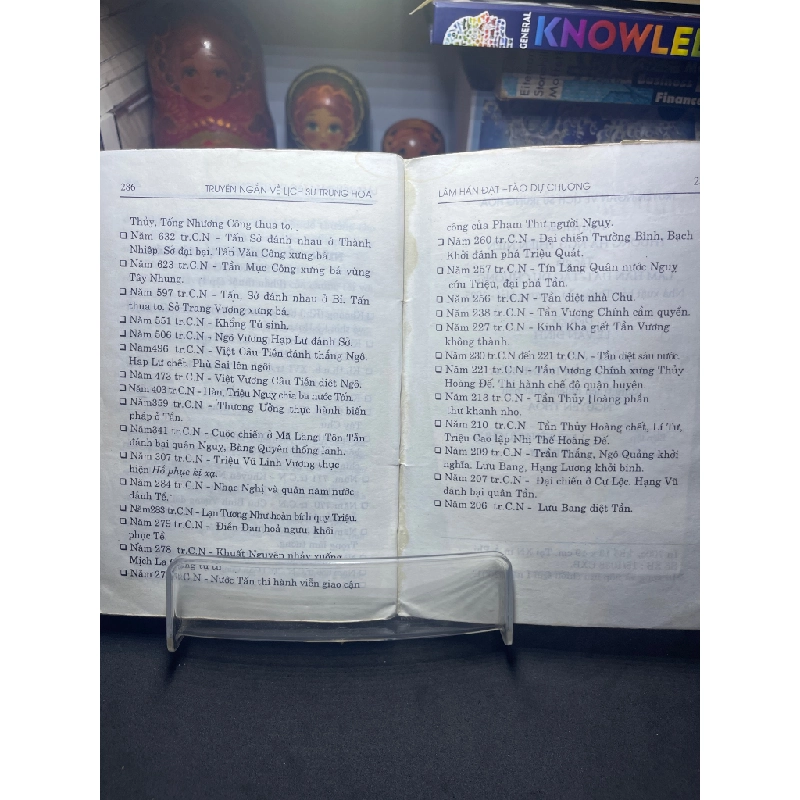 GENERAL
KNOWLE
Finance
286 TRUYỆN NGẮN VỀ LỊCH SỬ TRUNG HOA
Thủy, Tống Nhương Công thua to.
❑ Năm 632 tr.C.N - Tấn Sở đánh nhau ở Thành
Nhiệp. Sở đại bại. Tấn Văn Công xưng bá.
❑ Năm 623 tr.C.N - Tần Mục Công xưng bá vùng
Tây Nhung.
❑ Năm 597 tr.C.N - Tấn, Sở đánh nhau ở Bỉ. Tấn
thua to. Sở Trang Vương xưng bá.
❑ Năm 551 tr.C.N - Khổng Tử sinh.
❑ Năm 506 tr.C.N - Ngô Vương Hạp Lư đánh Sở.
❑ Năm496 tr.C.N - Việt Câu Tiễn đánh thắng Ngô.
Hạp Lư chết. Phù Sai lên ngôi.
❑ Năm 473 tr.C.N - Việt Vương Câu Tiễn diệt Ngô.
❑ Năm 403 tr.C.N - Hàn, Triệu Ngụy chia ba nước Tấn.
❑ Năm359 tr.C.N - Thương Ưởng thực hành biến
pháp ở Tần.
❑ Năm341 tr.C.N - Cuộc chiến ở Mã Lăng. Tôn Tẫn
đánh bại quân Ngụy, Bàng Quyên thống lanh.
❑ Năm 307 tr.C.N - Triệu Vũ Linh Vương thực
hiện Hồ phục kị xạ.
❑ Năm 284 tr C.N - Nhạc Nghị và quân năm nước
đánh Tề.
❑ Năm283 tr.C.N - Lạn Tương Như hoàn bích quy Triệu.
❑ Năm 279 tr.C.N - Điền Đan hoả ngưu, khôi
phục Tề.
❑ Năm 278 tr.C.N - Khuất Nguyên nhảy xuống
Mịch La
❑ Năm tr.C.N - Nước Tần thi hành viễn giao cận
LÂM HÁN ĐẠT - TÀO DƯ CHƯƠNG
công của Phạm Thư người Ngụy.
❑ Năm 260 tr.C.N - Đại chiến Trường Bình, Bạch
Khởi đánh phá Triệu Quát.
❑ Năm 257 tr.C.N - Tín Lăng Quân nước Ngụy
cứu Triệu, đại phá Tần.
❑ Năm 256 tr.C.N - Tần diệt nhà Chu.
❑ Năm 238 tr.C.N - Tần Vương Chính cầm quyền.
❑ Năm 227 tr.C.N - Kinh Kha giết Tần Vương
không thành.
❑ Năm 230 tr.C.N đến 221 tr.C.N - Tần diệt sáu nước.
❑ Năm 221 tr.C.N - Tần Vương Chính xưng Thủy
Hoàng Đế. Thi hành chế độ quận huyện.
❑ Năm 213 tr.C.N - Tần Thủy Hoàng phần
thư khanh nho.
❑ Năm 210 tr.C.N - Tần Thủy Hoàng chết, Lí Tư,
Triệu Cao lập Nhị Thế Hoàng Đế.
❑ Năm 209 tr.C.N - Trần Thắng, Ngô Quảng khởi
nghĩa. Lưu Bang, Hạng Lương khởi binh.
❑ Năm 207 tr.C.N - Đại chiến ở Cự Lộc. Hạng Vũ
đánh bại quân Tần.
❑ Năm 206 tr.C.N - Lưu Bang diệt Tần.